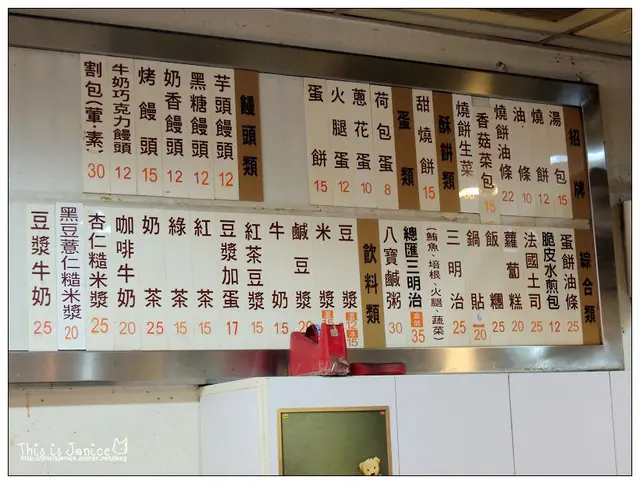 招牌
湯包 15
燒餅 12
油條 10
燒餅油條 22
香菇菜包 15
燒餅生菜
酥餅類
甜燒餅 15
蛋類
荷包蛋 8
蔥花蛋 10
火腿蛋 12
蛋餅 15
饅頭類
芋頭饅頭 12
黑糖饅頭 12
奶香饅頭 12
烤饅頭 15
牛奶巧克力饅頭 12
割包(葷.素) 30
綜合類
蛋餅油條 25
脆皮水煎包 12
法國土司 20
蘿蔔糕 20
飯糰 25
鍋貼 6 20
三明治 25
總匯三明治 35
(鮪魚、培根、火腿、蔬菜)
八寶鹹粥 30
飲料類
豆漿 12 15
米漿
鹹豆漿
牛奶 15
紅茶豆漿 15
豆漿加蛋 17
紅茶 15
綠茶 15
奶茶 15
咖啡牛奶 25
杏仁糙米漿 25
黑豆薏仁糙米漿 20
豆漿牛奶 25
This is Janice